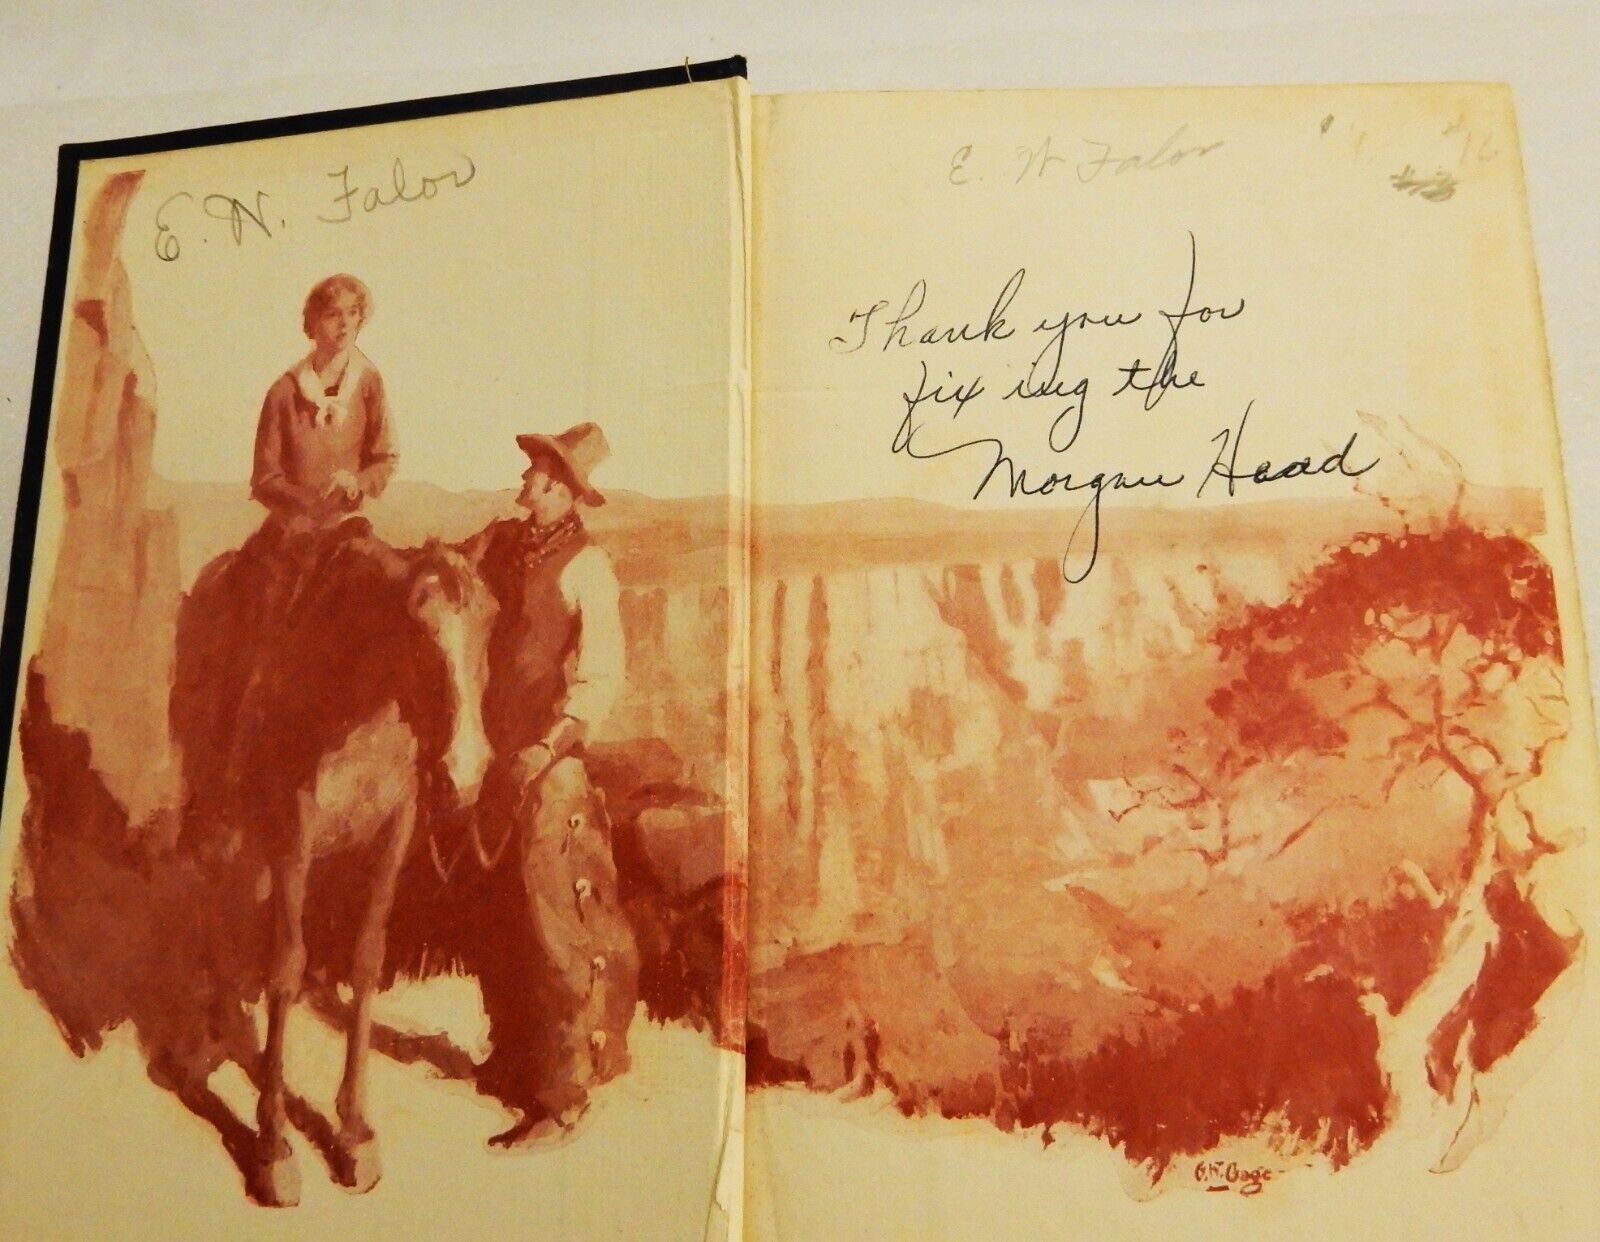 E. W. Falor
E. W Falor
12
Thank you for
fix ing the
Morgan Hood
G.W. Gage